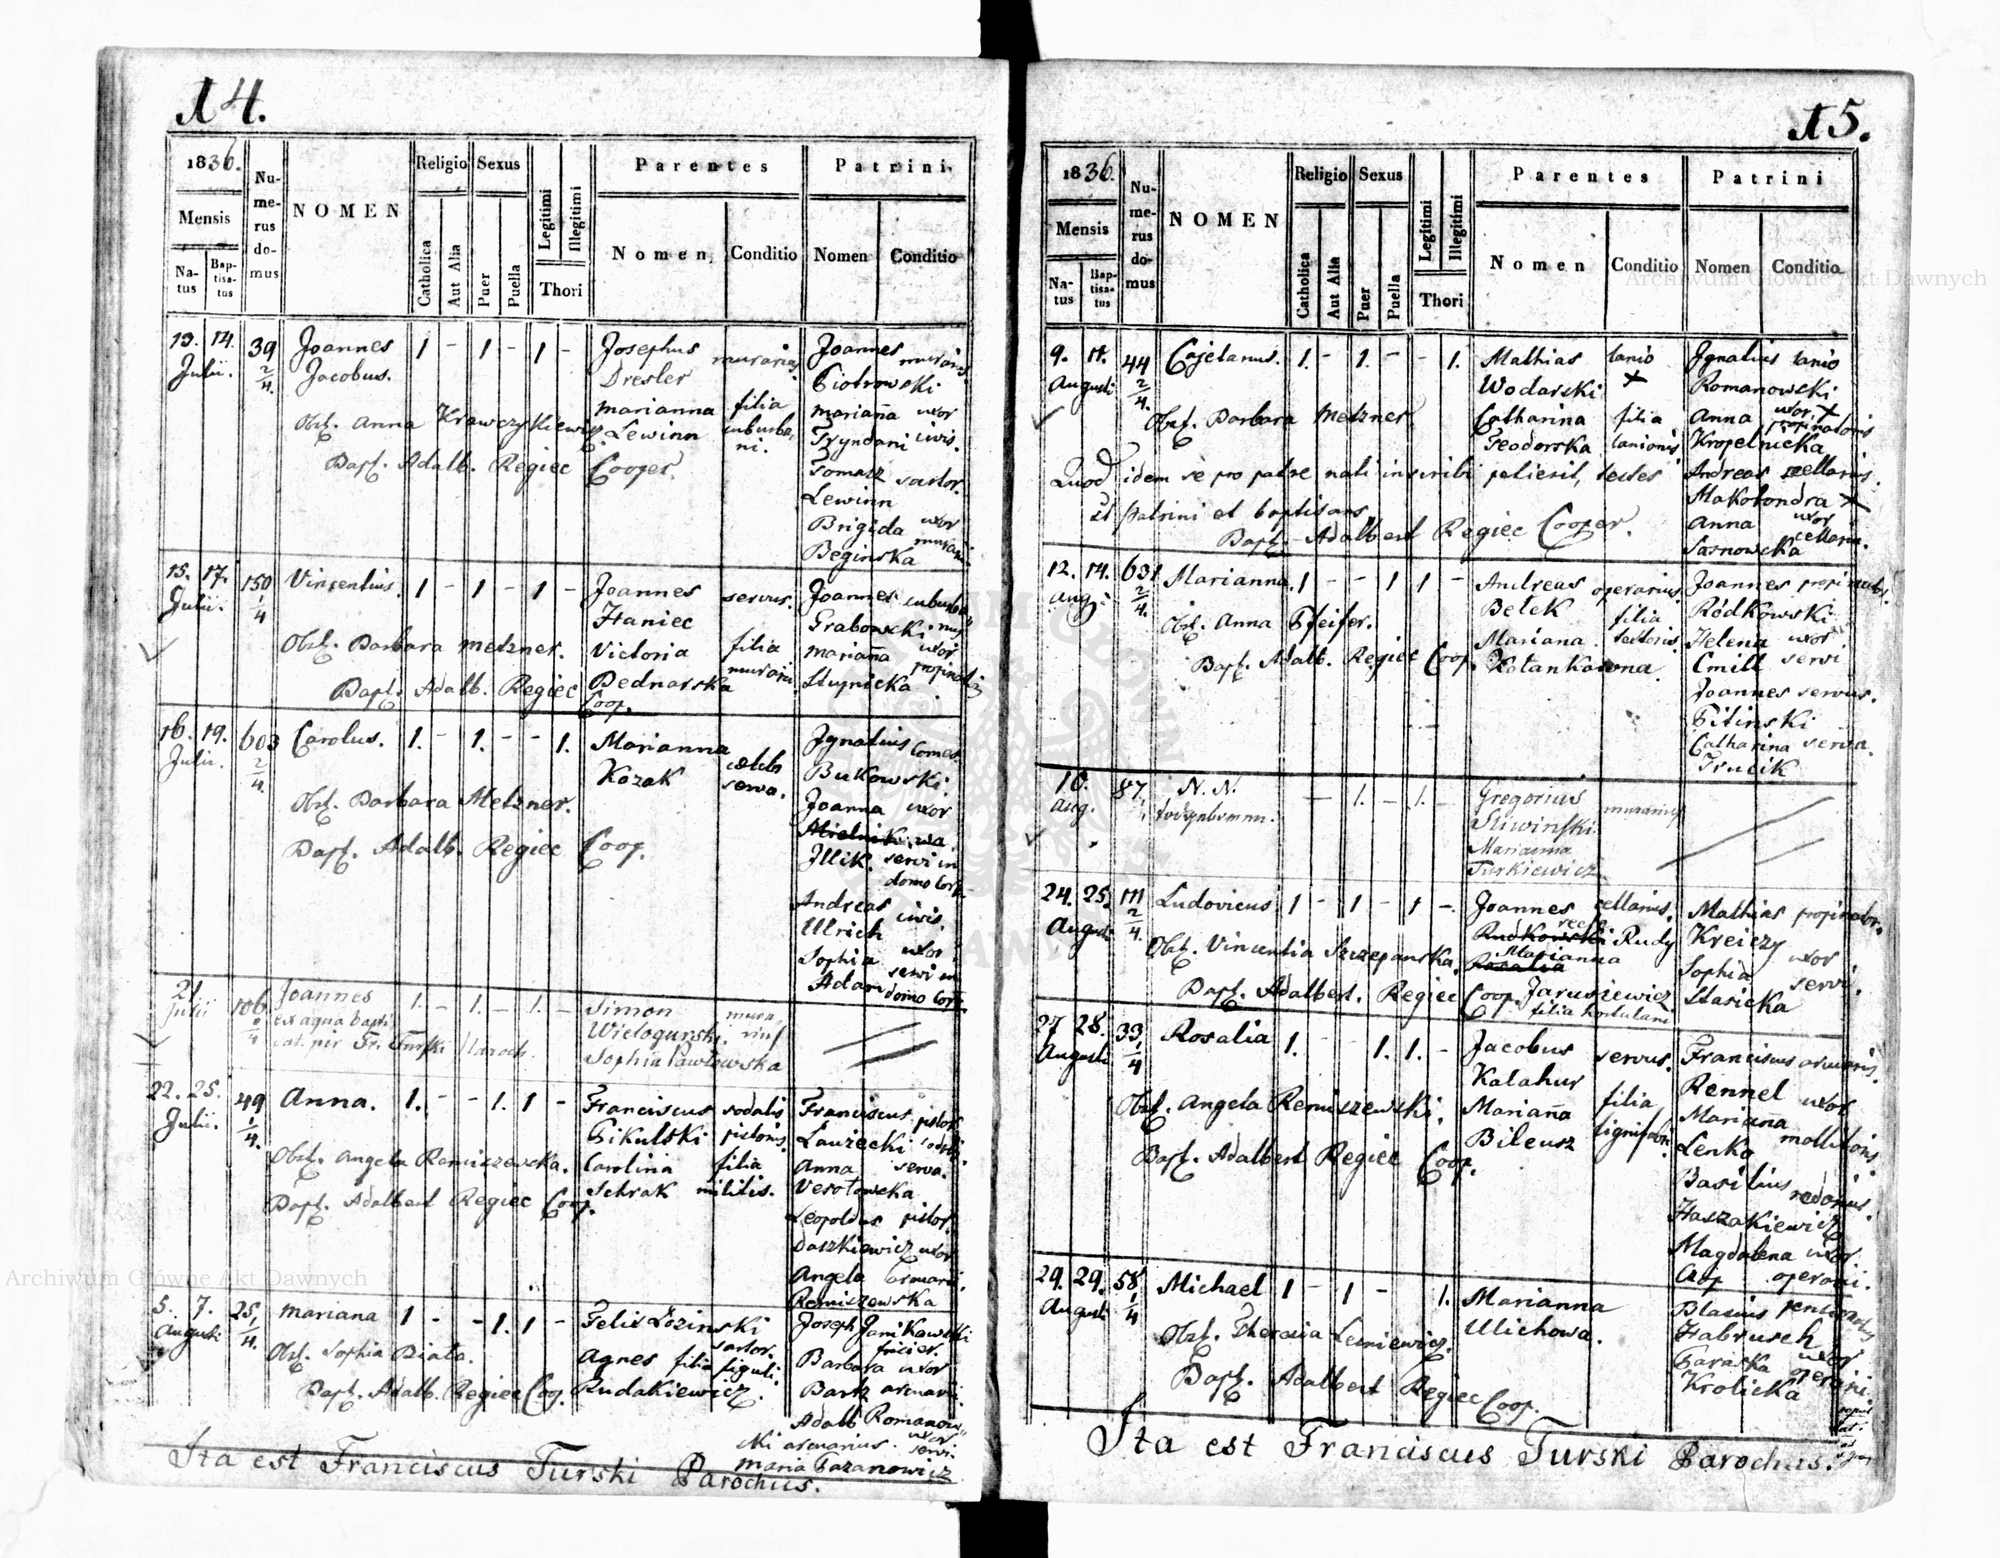 14.
1836.
Mensis
Na-
tus
Bap-
tisa-
tus
Nu-
me-
rus
do-
mus
NOMEN
Religio
Catholica
Aut Alia
Sexus
Puer
Puella
Legitimi
Illegitimi
Thori
Parentes
Nomen
Conditio
Patrini
Nomen
Conditio
13. 14. 39 Joannes 1 - 1 - 1 - Josephus murarius Joannes murarius
Julii. 2/4. Jacobus. Dresler Piotrowski
Marianna filia Mariana uxor
Obst. Anna Krawczykiewicz Lewinn suburba- Tryndani civis.
ni.
Bapt. Adalb. Regiec Cooper. Tomasz sartor.
Lewinn
Brigida uxor
Beginska murarii
15. 17. 150 Vincentius. 1 - 1 - 1 - Joannes servus. Joannes suburba-
Julii. 1/4 Haniec Grabowski nus
Obst. Barbara Metzner. Victoria filia Marianna uxor
Bednarska murarii Stupnicka propinato
Bapt. Adalb. Regiec Coop.
16. 19. 603 Carolus. 1. - 1. - - 1. Marianna Ignatius Comes
Julii. 2/4. Kozak caelebs Bukowski.
serva.
Obst. Barbara Metzner. Joanna uxor
Illik. servi in
Bapt. Adalb. Regiec Coop. domo Corr.
Andreas civis
Ulrich
Sophia uxor
Adam servi in
domo Corr.
21 106 Joannes 1. - 1. - 1. - Simon mura-
Julii 2/4 ex aqua bapti- Wielogurski. rius
sat. per Fr. Turski Paroch. Sophia Pawłowska
22. 25. 49 Anna. 1. - - 1. 1 - Franciscus sodalis Franciscus pistor.
Julii. 1/4. Pikulski pistoris. Lauzecki
Obst. Angela Remiszewska. Carolina filia Anna serva.
Schrak militis.
Bapt. Adalbert Regiec Coop. Leopoldus pistor.
Daszkiewicz uxor
Angela
Remiszewska
5. 7. 25 Mariana 1 - - 1. 1 - Felix Łozinski Joseph Janikowski
Augusti 1/4. sartor.
Obst. Sophia Biała. Agnes filia figuli Barbara uxor
Bapt. Adalb. Regiec Coop. Rudakiewicz. Bartz arcuarii
Adalb Romanow-
ski arcuarius. uxor
servi.
Maria Bazanowicz
Ita est Franciscus Turski Parochus.
15.
1836.
Mensis
Na-
tus
Bap-
tisa-
tus
Nu-
me-
rus
do-
mus
NOMEN
Religio
Catholica
Aut Alia
Sexus
Puer
Puella
Legitimi
Illegitimi
Thori
Parentes
Nomen
Conditio
Patrini
Nomen
Conditio
9. 11. 44 Cajetanus. 1. - 1. - - 1. Mathias lanio Ignatius lanio
Augusti 2/4. Wodarski x Romanowski
Obst. Barbara Metzner Catharina filia Anna uxor x
Teodorska lanionis Kropelnicka propinatoris
Quod idem se pro patre nati inscribi petierit, testes Andreas cellarius.
Makolondra x
et Patrini et baptisans Anna uxor
Bapt. Adalbert Regiec Cooper. Sasnowska cellarii.
12. 14. 631 Marianna. 1 - - 1 1 - Andreas operarius. Joannes propinator.
Aug. 2/4. Bełek filia Rodkowski
Obst. Anna Pfeifer. Mariana textoris. Helena uxor
Bapt. Adalb. Regiec Coop. Cmill servi
Joannes servus.
Pilinski
Catharina serva.
Trucik
10. 87 N. N. - 1. - 1. - Gregorius murarius
Aug. Sliwinski.
Marianna
Turkiewicz
24. 25. 111 Ludovicus 1 - 1 - 1 -. Joannes cellarius. Mathias propinator.
Augusti 2/4. Rudkowski recte Rudy Kreiczy
Obst. Vincentia Szczepanska. Rosalia Marianna Sophia uxor
Bapt. Adalbert. Regiec Coop. Jarusiewicz Stasicka servi.
filia hortulani
27 28. 33 Rosalia 1. - - 1. 1. - Jacobus servus. Franciscus arcuarius.
Augusti 1/4 Kalahur Rennel
Obst. Angela Remiszewski. Mariana filia Mariana uxor
Bileusz lignifabri. Lenko mollitoris.
Bapt. Adalbert Regiec Coop. Basilius
Haszakiewicz
Magdalena uxor.
operarii.
29. 29. 58 Michael 1 - 1 - 1. Marianna Blasius
Augusti 1/4 Ulichowa. Habrusch
Obst. Theresia Lesniewicz. Paraska uxor
Krolicka operarii
Bapt. Adalbert Regiec Coop.
Ita est Franciscus Turski Parochus.
Archiwum Główne Akt Dawnych
Archiwum Główne Akt Dawnych